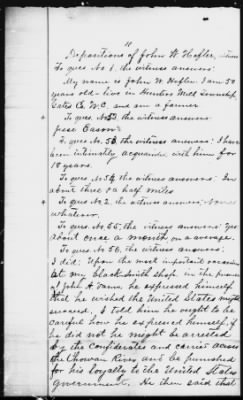 11
Depositions of John W. Hofler,
To ques. No. 1, the witness answers:
My name is John W. Hofler. I am 50
years old - live in Hunters Mill Township
Gates Co. N.C. and am a farmer
To ques. No. 52 the witness answers
Jesse Eason
To ques. No. 53, the witness answers: I have
been intimately acquainted with him for
18 years.
To ques. No. 54, the witness answers:
about three & a half miles
To ques. No. 2, the witness answers:
whatever.
To ques. No. 55, the witness answers: Yes
about once a month on an average.
To ques. No. 56, the witness answers:
I did: Upon the most important occasion
at my blacksmith shop in the presence
of John A. he expressed himself
that he wished the United States might
succeed. I told him he ought to be
careful how he expressed himself, if
he did not he might be arrested
by the Confederates and carried across
the Chowan River and be punished
for his loyalty to the United States
government. He then said that